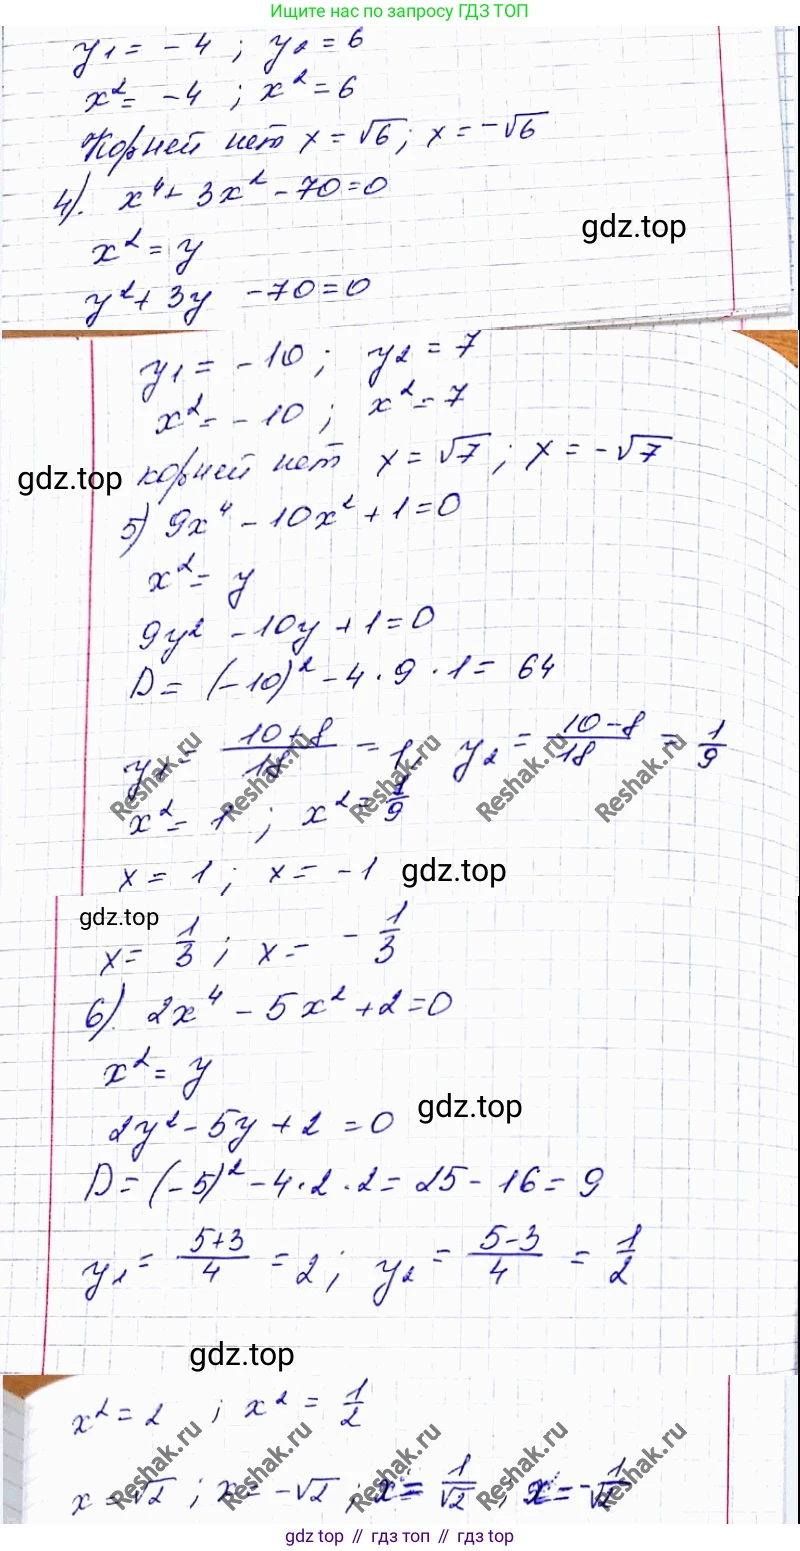 Ищите нас по запросу ГДЗ ТОП
y₁ = -4 ; y₂ = 6
x² = -4 ; x² = 6
Корней нет x = √6; x = -√6
4). x⁴ + 3x² - 70 = 0
gdz.top
x² = y
y² + 3y - 70 = 0
y₁ = -10 ; y₂ = 7
x² = -10 ; x² = 7
корней нет x = √7 ; x = -√7
gdz.top
5) 9x⁴ - 10x² + 1 = 0
x² = y
9y² - 10y + 1 = 0
D = (-10)² - 4 · 9 · 1 = 64
y₁ = (10+8)/18 = 1, y₂ = (10-8)/18 = 1/9
Reshak.ru Reshak.ru Reshak.ru Reshak.ru
x² = 1 ; x² = 1/9
x = 1 ; x = -1
gdz.top
gdz.top
x = 1/3 ; x = -1/3
6). 2x⁴ - 5x² + 2 = 0
x² = y
gdz.top
2y² - 5y + 2 = 0
D = (-5)² - 4 · 2 · 2 = 25 - 16 = 9
y₁ = (5+3)/4 = 2 ; y₂ = (5-3)/4 = 1/2
gdz.top
x² = 2 ; x² = 1/2
Reshak.ru Reshak.ru Reshak.ru Reshak.ru
x = √2 ; x = -√2 ; x = 1/√2 ; x = -1/√2
gdz top // гдз топ // gdz.top